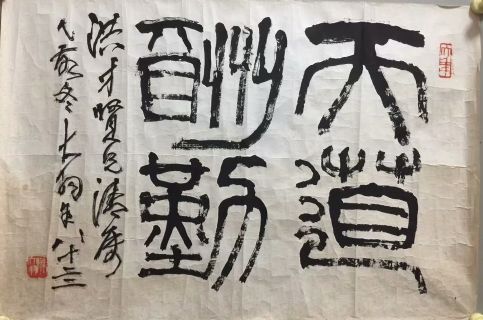 天道
酬勤
洪才賢兄清屬
乙亥冬大羽年八十三